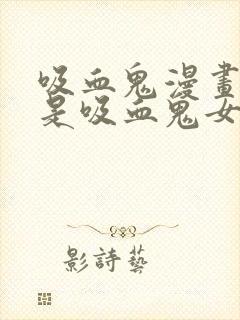 吸血鬼漫畫
是吸血鬼女
影詩藝